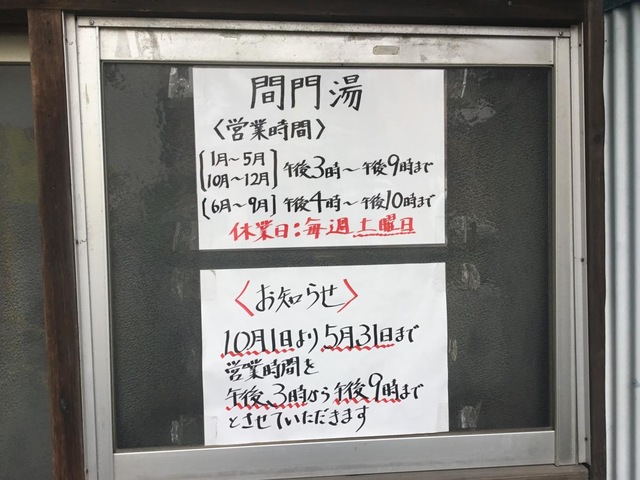 間門湯
〈営業時間〉
1月～5月
10月～12月
午後3時～午後9時まで
(6月～9月) 午後4時～午後10時まで
休業日:毎週土曜日
〈お知らせ〉
10月1日より5月31日まで
営業時間を
午後、3時から午後9時まで
とさせていただきます